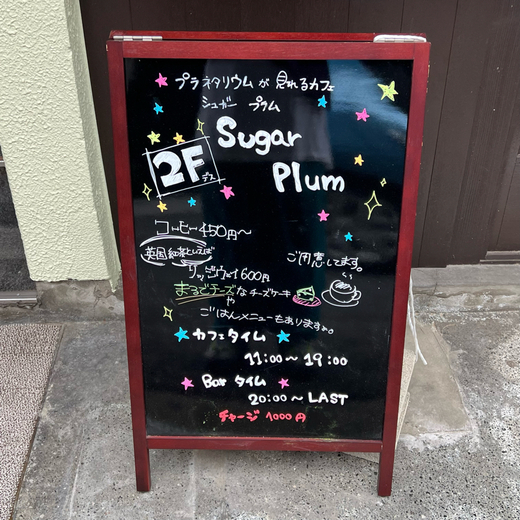 プラネタリウムが見れるカフェ
シュガー プラム
Sugar
2Fデス
Plum
コーヒー450円〜
英国紅茶といえば
リッジウェイ600円
ご用意してます。
まるでチーズなチーズケーキ
や
ごはんメニューもありますよ。
カフェタイム
11:00〜19:00
Bar タイム
20:00〜LAST
チャージ 1000円